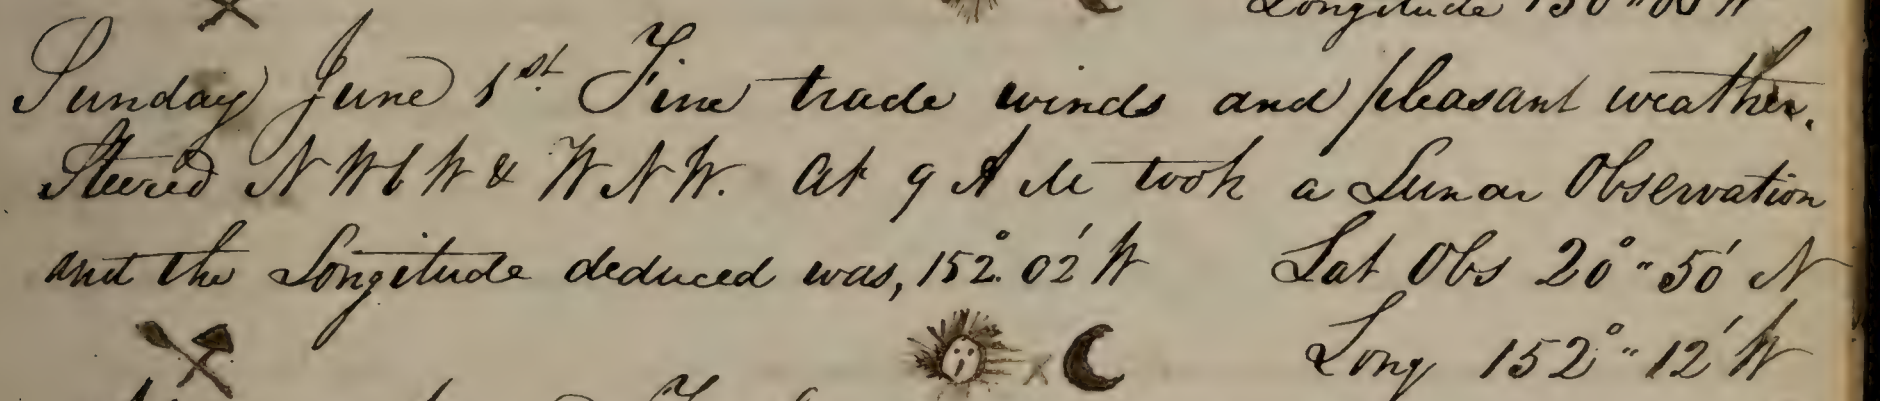 Longitude 150"
Sunday June 1st. Fine trade winds and pleasant weather.
Steered N W b W & W N W. At 9 A M took a Lunar Observation
and the Longitude deduced was, 152°. 02' W Lat Obs 20°" 50' N
Long 152°" 12' W